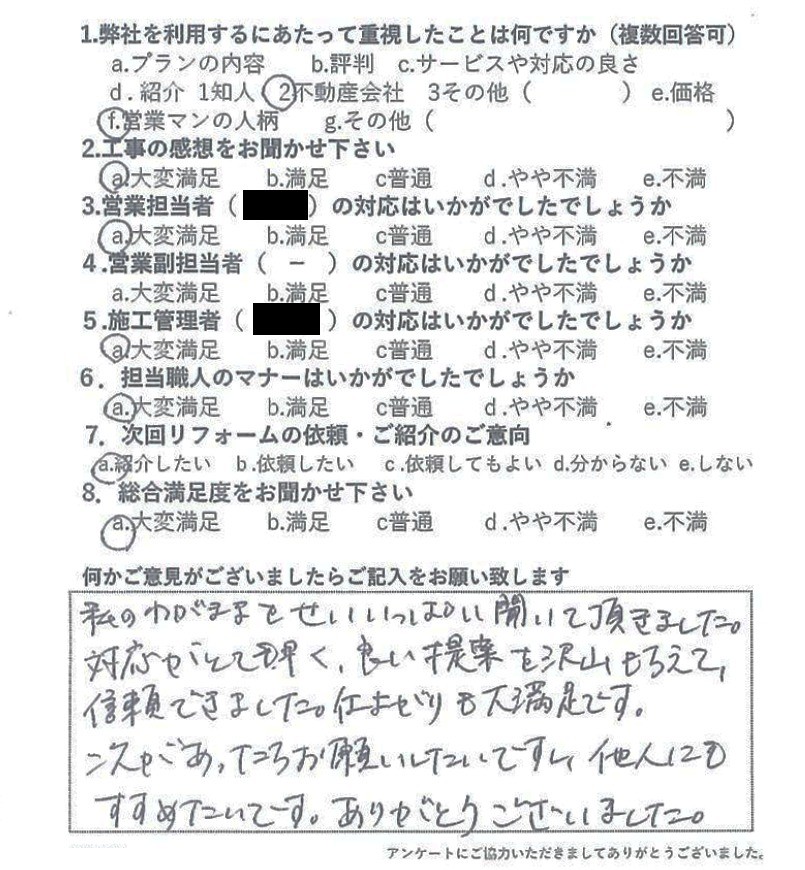 1.弊社を利用するにあたって重視したことは何ですか（複数回答可）
a.プランの内容 b.評判 c.サービスや対応の良さ
d.紹介 1知人 2不動産会社 3その他（ ） e.価格
f.営業マンの人柄 g.その他（ ）
2.工事の感想をお聞かせ下さい
a.大変満足 b.満足 c普通 d.やや不満 e.不満
3.営業担当者（ ）の対応はいかがでしたでしょうか
a.大変満足 b.満足 c普通 d.やや不満 e.不満
4.営業副担当者（ － ）の対応はいかがでしたでしょうか
a.大変満足 b.満足 c普通 d.やや不満 e.不満
5.施工管理者（ ）の対応はいかがでしたでしょうか
a.大変満足 b.満足 c普通 d.やや不満 e.不満
6．担当職人のマナーはいかがでしたでしょうか
a.大変満足 b.満足 c普通 d.やや不満 e.不満
7．次回リフォームの依頼・ご紹介のご意向
a.紹介したい b.依頼したい c.依頼してもよい d.分からない e.しない
8．総合満足度をお聞かせ下さい
a.大変満足 b.満足 c普通 d.やや不満 e.不満
何かご意見がございましたらご記入をお願い致します
私のわがままをせいいっぱい聞いて頂きました。
対応がとて早く、良い提案を沢山もらえて、
信頼できました。仕上がりも大満足です。
次があったらお願いしたいですし、他人にも
すすめたいです。ありがとうございました。
アンケートにご協力いただきましてありがとうございました。